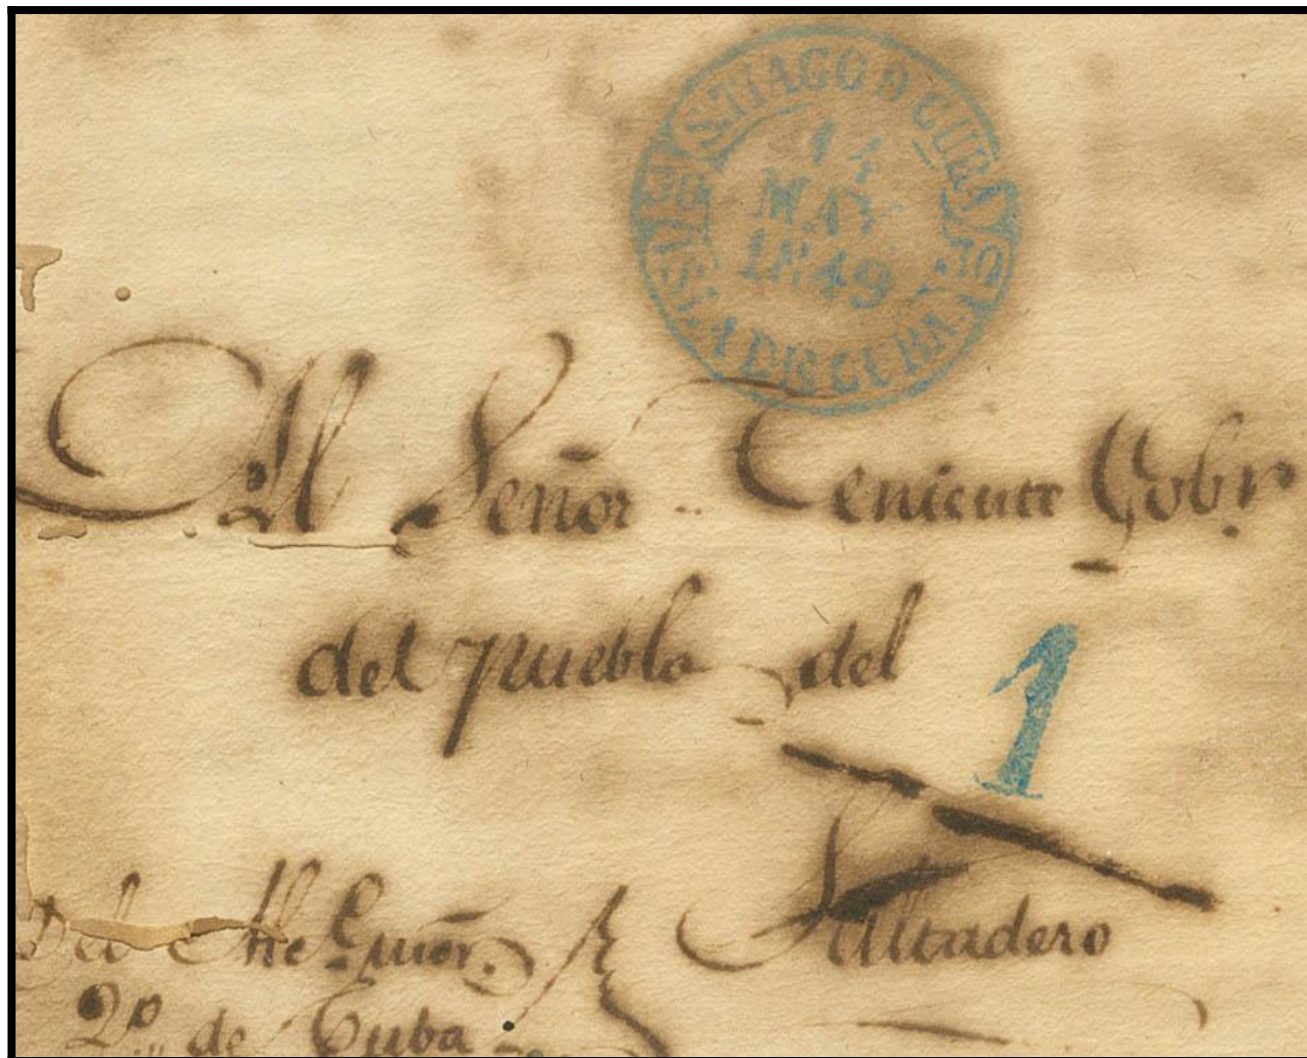 S.TIAGO D CUBA
14
MAY
1849
ISLA DE CUBA
Al Señor Teniente Gobr
del pueblo del
1
Saltadero
Del
2º de Cuba